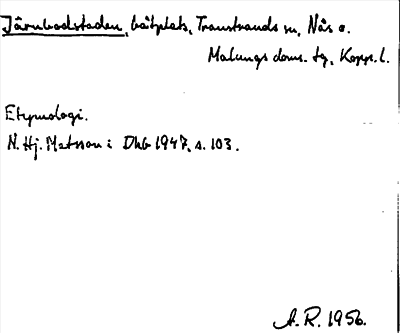 Järnbodstaden, båtplats, Transtrands sn, Nås o.
Malungs doms. tg, Kopp. l.
Etymologi.
N. Hj. Matsson i DhbG 1947, s. 103.
A. R. 1956.